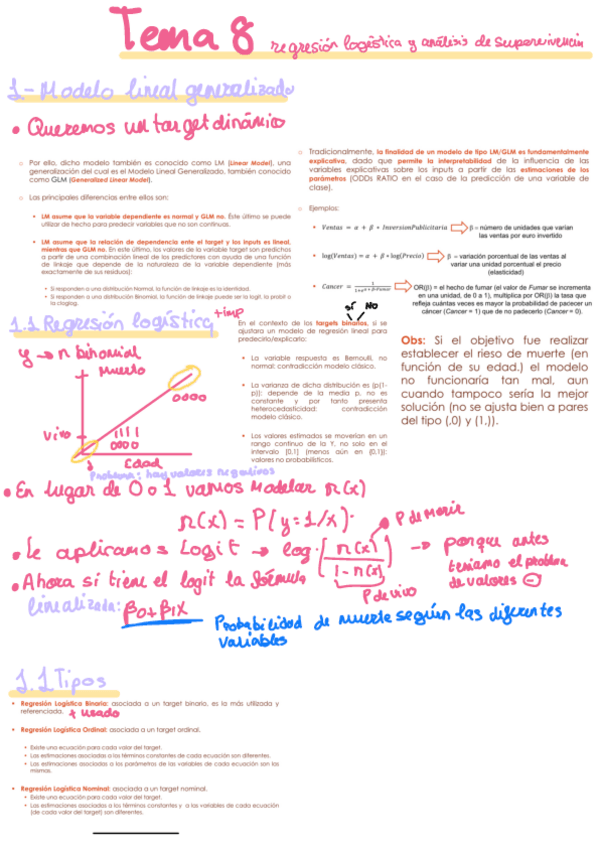 Tema 8 regresión logística y análisis de supervivencia
1.- Modelo lineal generalizado
• Queremos un target dinámico
○ Por ello, dicho modelo también es conocido como LM (Linear Model), una
generalización del cual es el Modelo Lineal Generalizado, también conocido
como GLM (Generalized Linear Model).
○ Las principales diferencias entre ellos son:
• LM asume que la variable dependiente es normal y GLM no. Éste último se puede
utilizar de hecho para predecir variables que no son continuas.
• LM asume que la relación de dependencia ente el target y los inputs es lineal,
mientras que GLM no. En este último, los valores de la variable target son predichos
a partir de una combinación lineal de los predictores con ayuda de una función
de linkaje que depende de la naturaleza de la variable dependiente (más
exactamente de sus residuos):
• Si responden a una distribución Normal, la función de linkaje es la identidad.
• Si responden a una distribución Binomial, la función de linkaje puede ser la logit, la probit o
la cloglog.
○ Tradicionalmente, la finalidad de un modelo de tipo LM/GLM es fundamentalmente
explicativa, dado que permite la interpretabilidad de la influencia de las
variables explicativas sobre los inputs a partir de las estimaciones de los
parámetros (ODDs RATIO en el caso de la predicción de una variable de
clase).
○ Ejemplos:
• Ventas = α + β ∗ InversimPublicitaria β = número de unidades que varían
las ventas por euro invertido
• log(Ventas) = α + β ∗ log(Precio) β = variación porcentual de las ventas al
variar una unidad porcentual el precio
(elasticidad)
• Cancer = 1/(1+e^(α+β∗Fumar)) OR(β) = el hecho de fumar (el valor de Fumar se incrementa
en una unidad, de 0 a 1), multiplica por OR(β) la tasa que
refleja cuántas veces es mayor la probabilidad de padecer un
cáncer (Cancer = 1) que de no padecerlo (Cancer = 0).
1.1 Regresión logística + imp
y → π binomial
Muerto
0000
Vivo 1111
0000
Edad
Problema: hay valores negativos
sí no
En el contexto de los targets binarios, si se
ajustara un modelo de regresión lineal para
predecirlo/explicarlo:
• La variable respuesta es Bernoulli, no
normal: contradicción modelo clásico.
• La varianza de dicha distribución es (p(1-
p)): depende de la media p, no es
constante y por tanto presenta
heterocedasticidad: contradicción
modelo clásico.
• Los valores estimados se moverían en un
rango continuo de la Y, no solo en el
intervalo [0,1] (menos aún en {0,1}):
valores no probabilísticos.
Obs: Si el objetivo fue realizar
establecer el rieso de muerte (en
función de su edad,) el modelo
no funcionaría tan mal, aun
cuando tampoco sería la mejor
solución (no se ajusta bien a pares
del tipo (,0) y (1,)).
• En lugar de 0 o 1 vamos modelar π(x)
π(x) = P(y=1/x).
P de morir
• Le aplicamos Logit → log · (π(x) / 1 - π(x)) → porque antes
teníamo el problema
de valores ⊖
P de vivo
• Ahora sí tiene el logit la fórmula
linealizada: β0+β1X
Probabilidad de muerte según las diferentes
variables
1.1 Tipos
• Regresión Logística Binaria: asociada a un target binario, es la más utilizada y
referenciada. + usado
• Regresión Logística Ordinal: asociada a un target ordinal.
• Existe una ecuación para cada valor del target.
• Las estimaciones asociadas a los términos constantes de cada ecuación son diferentes.
• Las estimaciones asociadas a los parámetros de las variables de cada ecuación son las
mismas.
• Regresión Logística Nominal: asociada a un target nominal.
• Existe una ecuación para cada valor del target.
• Las estimaciones asociadas a los términos constantes y a las variables de cada ecuación
(de cada valor del target) son diferentes.